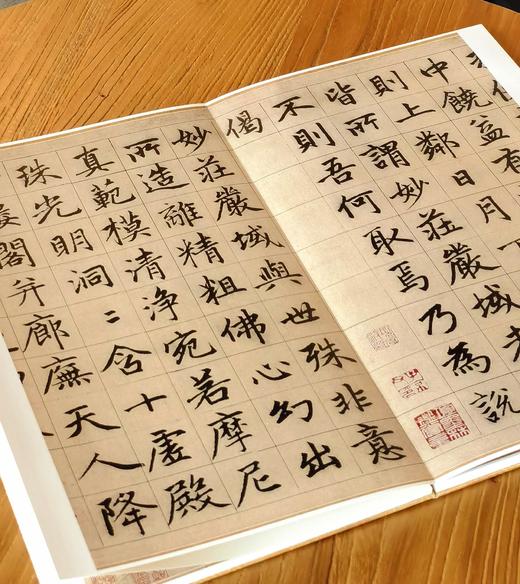 中饒益有
則上鄰日月下
皆所謂妙莊嚴域者
不則吾何取焉乃為說
偈
妙莊嚴域與世殊非意
所造離精粗佛心幻出
真範模清淨宛若摩尼
珠光明洞〻含十虛殿
閣并廊廡天人降